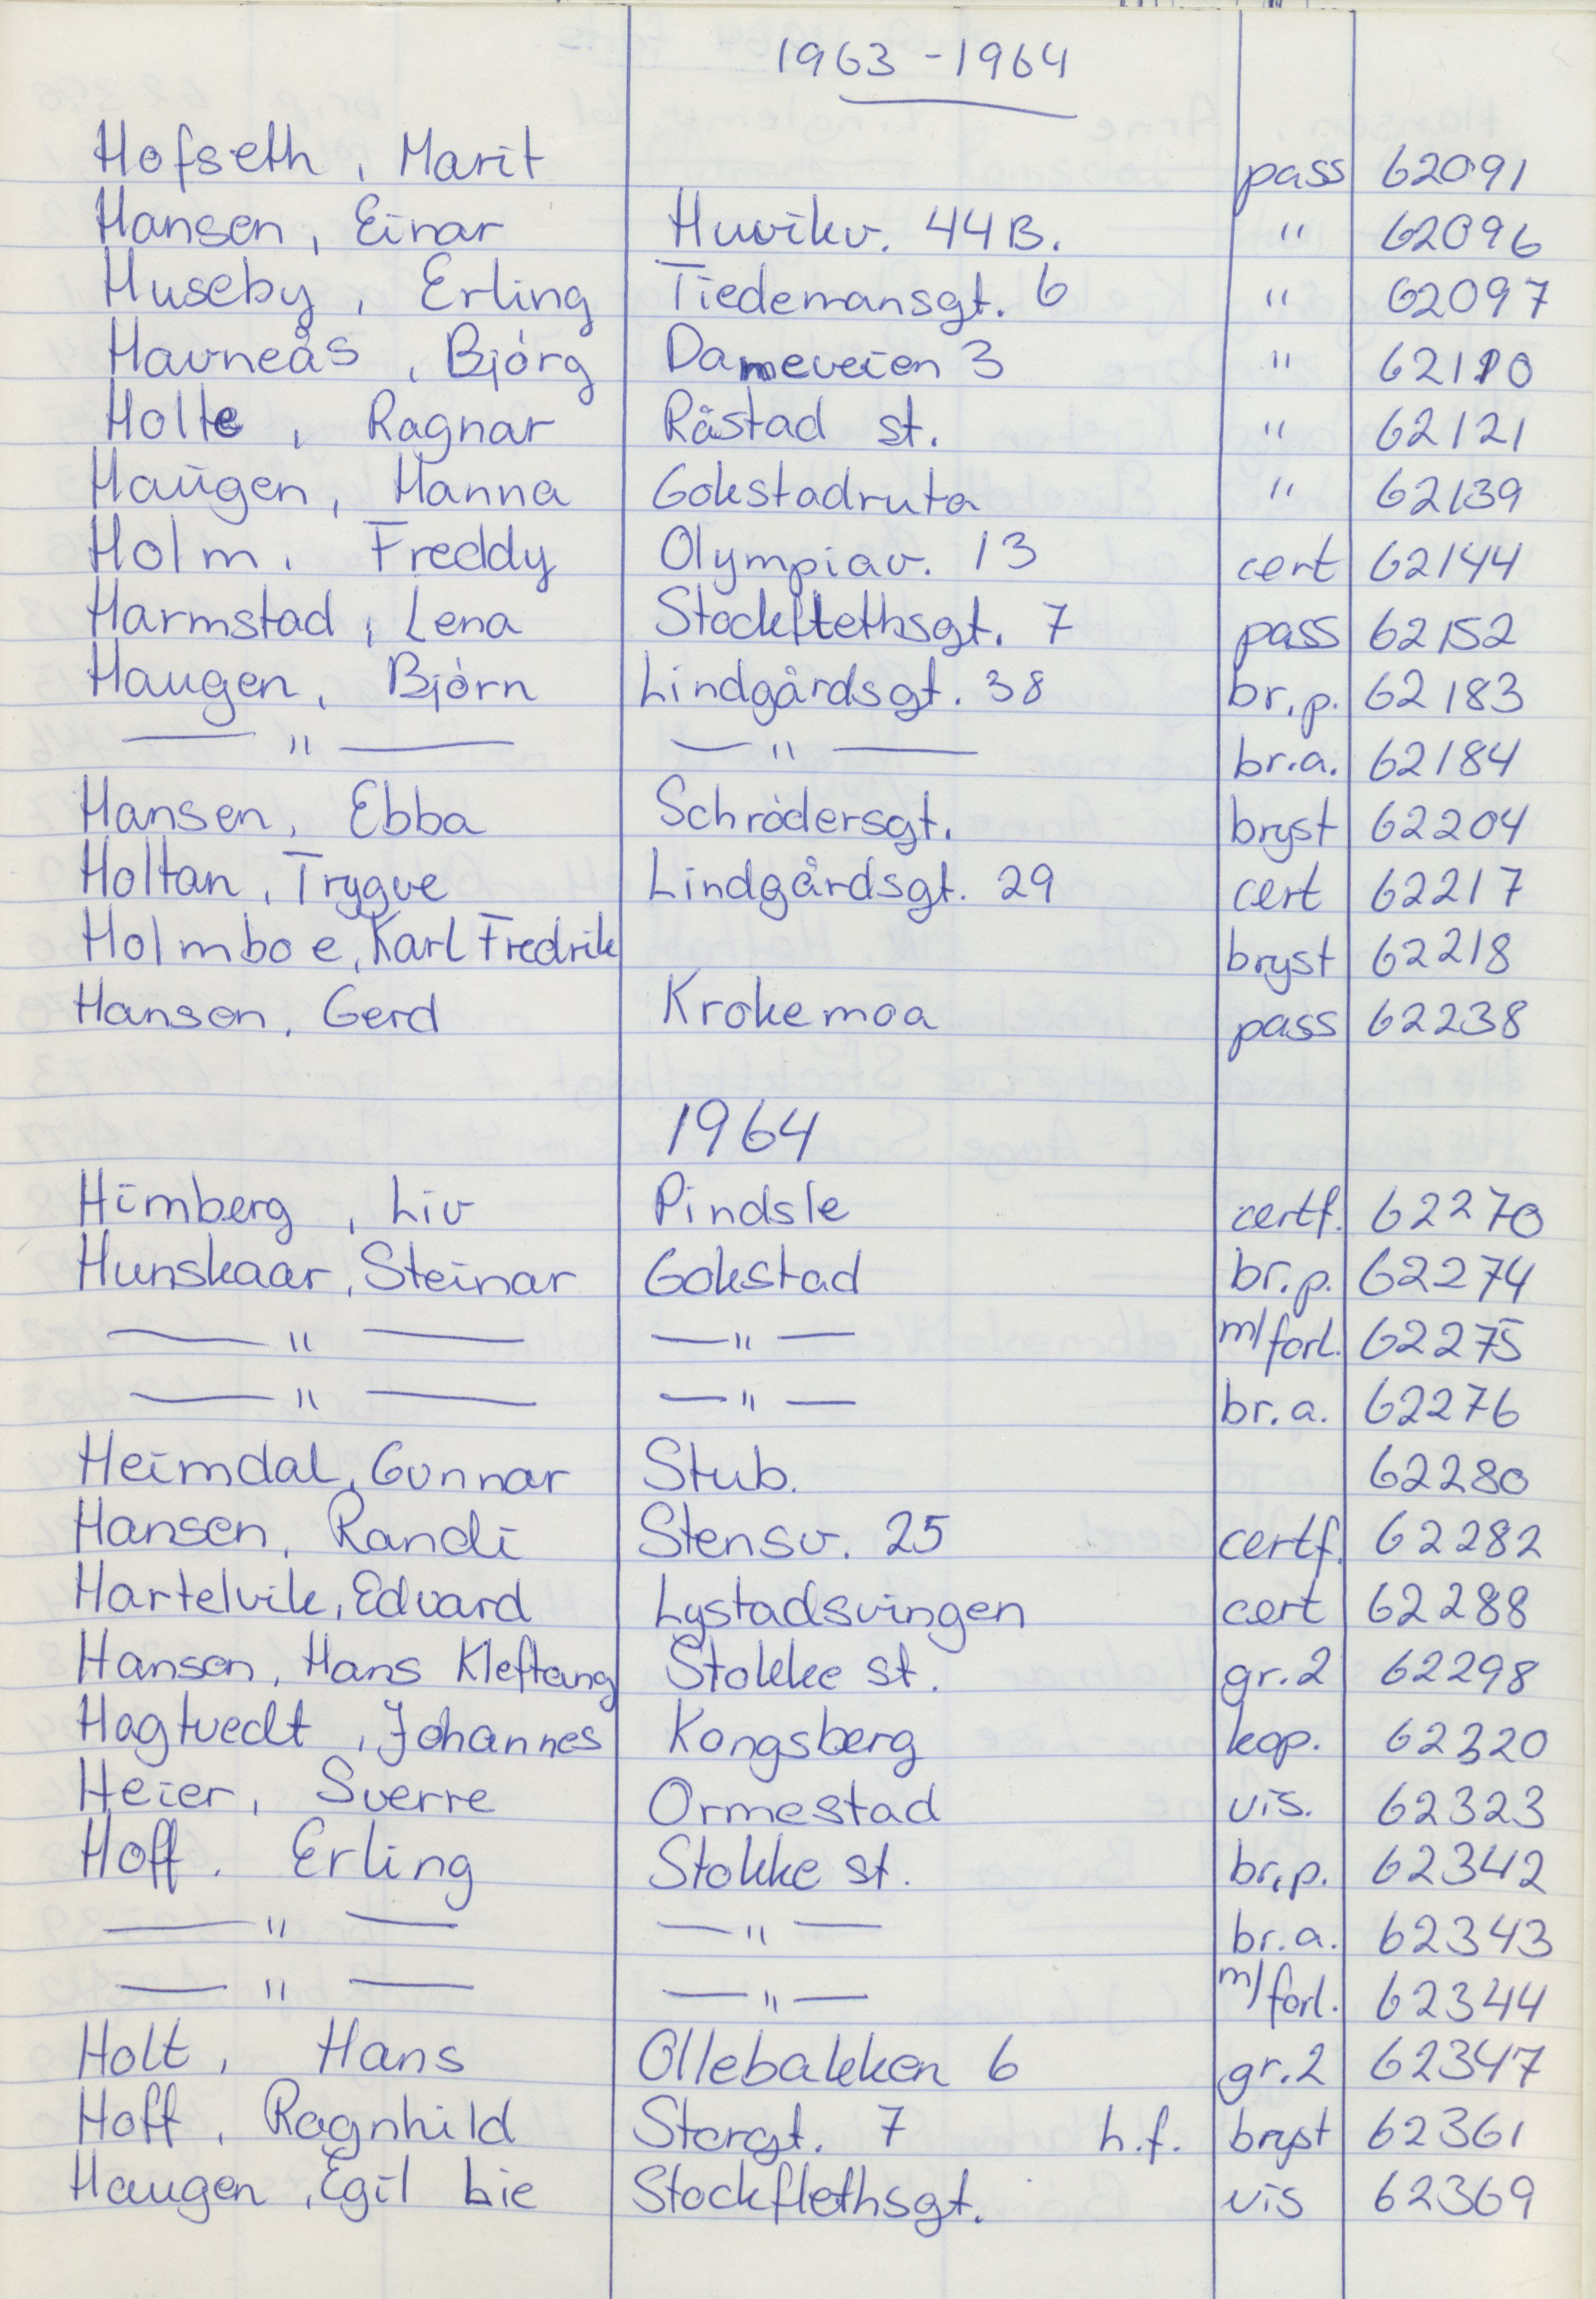 1963 - 1964
Hofseth, Marit pass 62091
Hansen, Einar Huvikv. 44B. " 62096
Huseby, Erling Tiedemansgt. 6 " 62097
Havneås, Bjørg Dameveien 3 " 62110
Holte, Ragnar Råstad st. " 62121
Haugen, Hanna Gokstadruta " 62139
Holm, Freddy Olympiav. 13 cert 62144
Harmstad, Lena Stockflethsgt. 7 pass 62152
Haugen, Bjørn Lindgårdsgt. 38 br.p. 62183
— " — — " — br.a. 62184
Hansen, Ebba Schrødersgt. bryst 62204
Holtan, Trygve Lindgårdsgt. 29 cert 62217
Holmboe, Karl Fredrik bryst 62218
Hansen, Gerd Krokemoa pass 62238
1964
Himberg, Liv Pindsle certf. 62270
Hunskaar, Steinar Gokstad br.p. 62274
— " — — " — m/forl. 62275
— " — — " — br.a. 62276
Heimdal, Gunnar Stub. 62280
Hansen, Randi Stensv. 25 certf. 62282
Hartelvik, Edvard Lystadsvingen cert 62288
Hansen, Hans Kleftang Stokke st. gr.2 62298
Hagtvedt, Johannes Kongsberg kop. 62320
Heier, Sverre Ormestad vis. 62323
Hoff, Erling Stokke st. br.p. 62342
— " — — " — br.a. 62343
— " — — " — m/forl. 62344
Holt, Hans Ollebakken 6 gr.2 62347
Hoff, Ragnhild Storgt. 7 h.f. bryst 62361
Haugen, Egil Lie Stockflethsgt. vis 62369